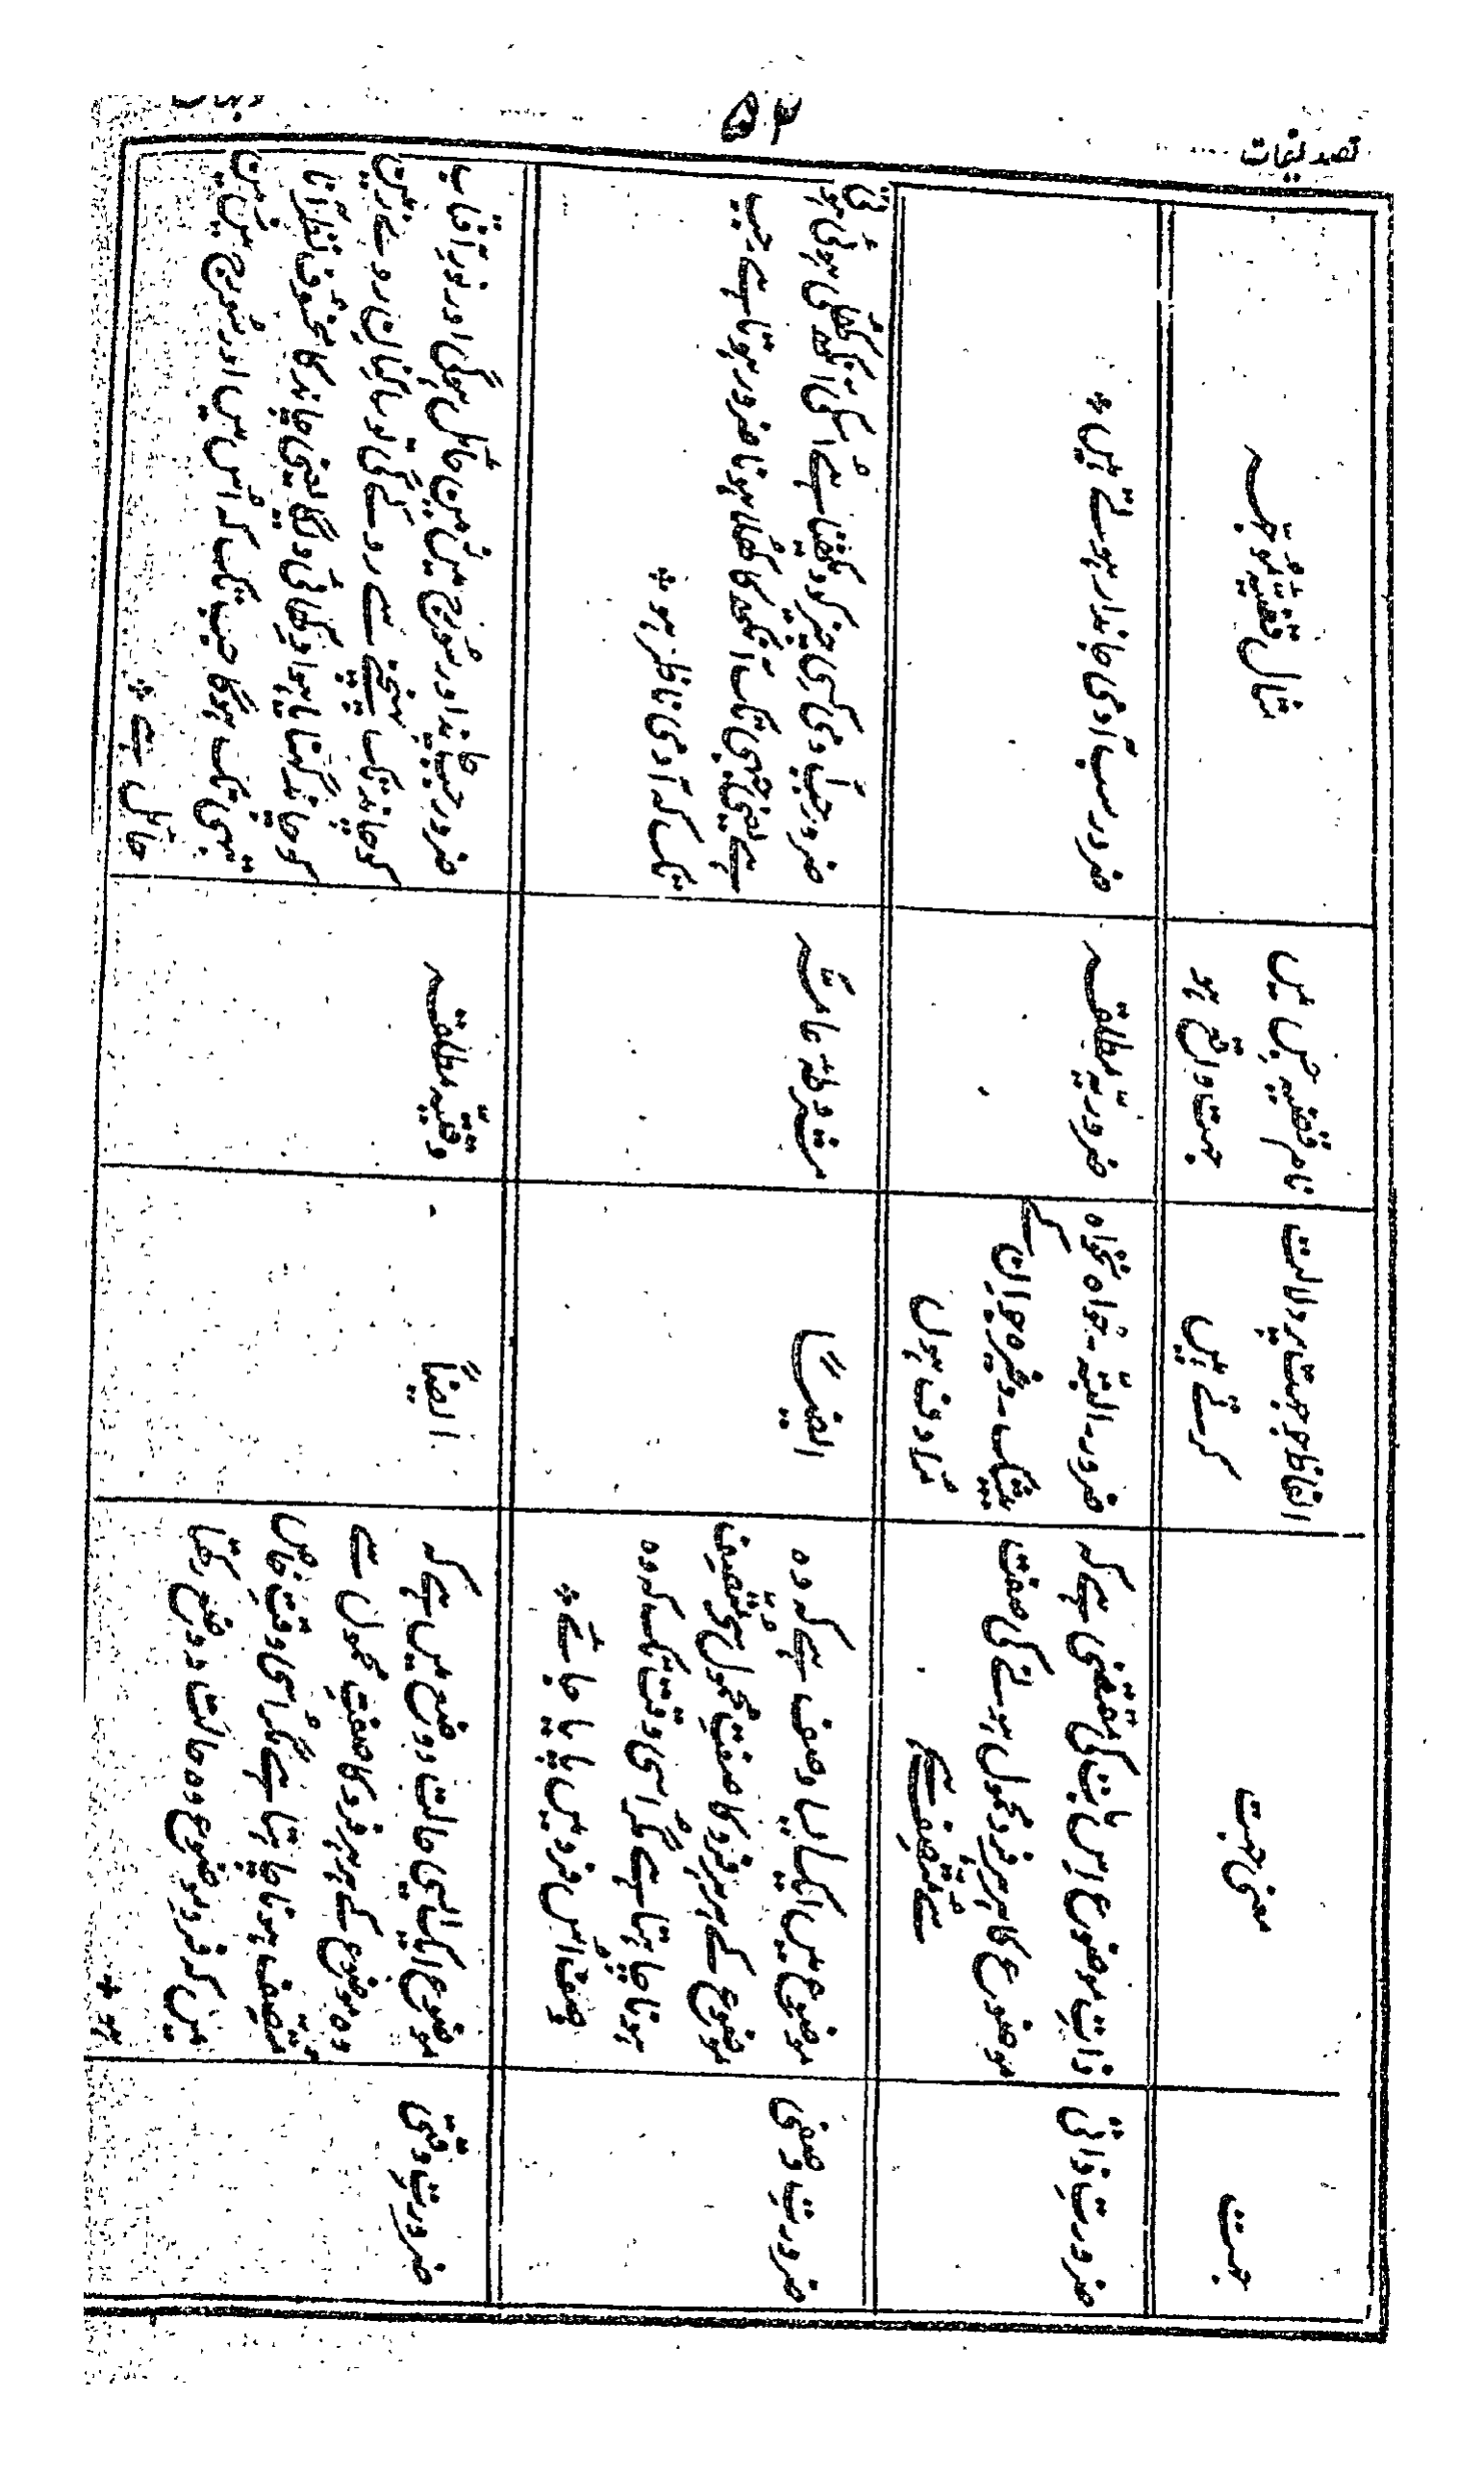 تصدیقات
۵۲
جہت
معنی جہت
الفاظ جو جہت پر دلالت
کرتے ہیں
نام قضیہ جس میں
جہت واقع ہو
مثال قضیہ موجہہ
ضرورتِ ذاتی
ذاتِ موضوع اس بات کی مقتضی ہے کہ
موضوع کا ہر ہر فرد محمول ہونے کی صفت
سے متصف ہے
ضرور۔ البتہ۔ خواہ نخواہ
بیشک۔ وغیرہ جو ان کے
مرادف ہوں
ضروریہ مطلقہ
ضرور سب آدمی جاندار ہوتے ہیں *
ضرورتِ وصفی
موضوع میں ایک ایسا وصف ہے کہ وہ
موضوع کے ہر ہر فرد کا صفتِ محمول سے متصف
ہونا چاہتا ہے مگر اُسی وقت تک کہ وہ
وصف اُس فرد میں پایا جائے *
ایضاً
مشروطہ عامہ
ضرور جب آدمی کسی چیز کو دیکھتا ہے اُسکی آنکھ کھلی ہوئی ہوتی
ہے یعنی تبھی تک آنکھ کا کھلا ہونا ضرور ہوتا ہے جب
تک کہ آدمی ناظر ہو *
ضرورتِ وقتی
موضوع ایک ایسی حالت میں ہے کہ
وہ موضوع کے ہر ہر فرد کا صفتِ محمول سے
متصف ہونا چاہتا ہے مگر اُسی وقتِ خاص
میں کہ فرد موضوع وہ حالت و وضع رکھتا
ہو *
ایضاً
وقتیہ مطلقہ
ضرور جب چاند اور سورج میں زمین حائل ہوگی اور نورِ آفتاب
کو چاند تک پہنچنے سے روکے گی تو ساکنانِ روے زمین
کو چاند گہنایا ہوا دکھائی دیگا یعنی چاند کا مخسوف نظر آنا
تبھی تک ہوگا جب تک کہ اُس میں اور سورج میں زمین
حائل ہے *